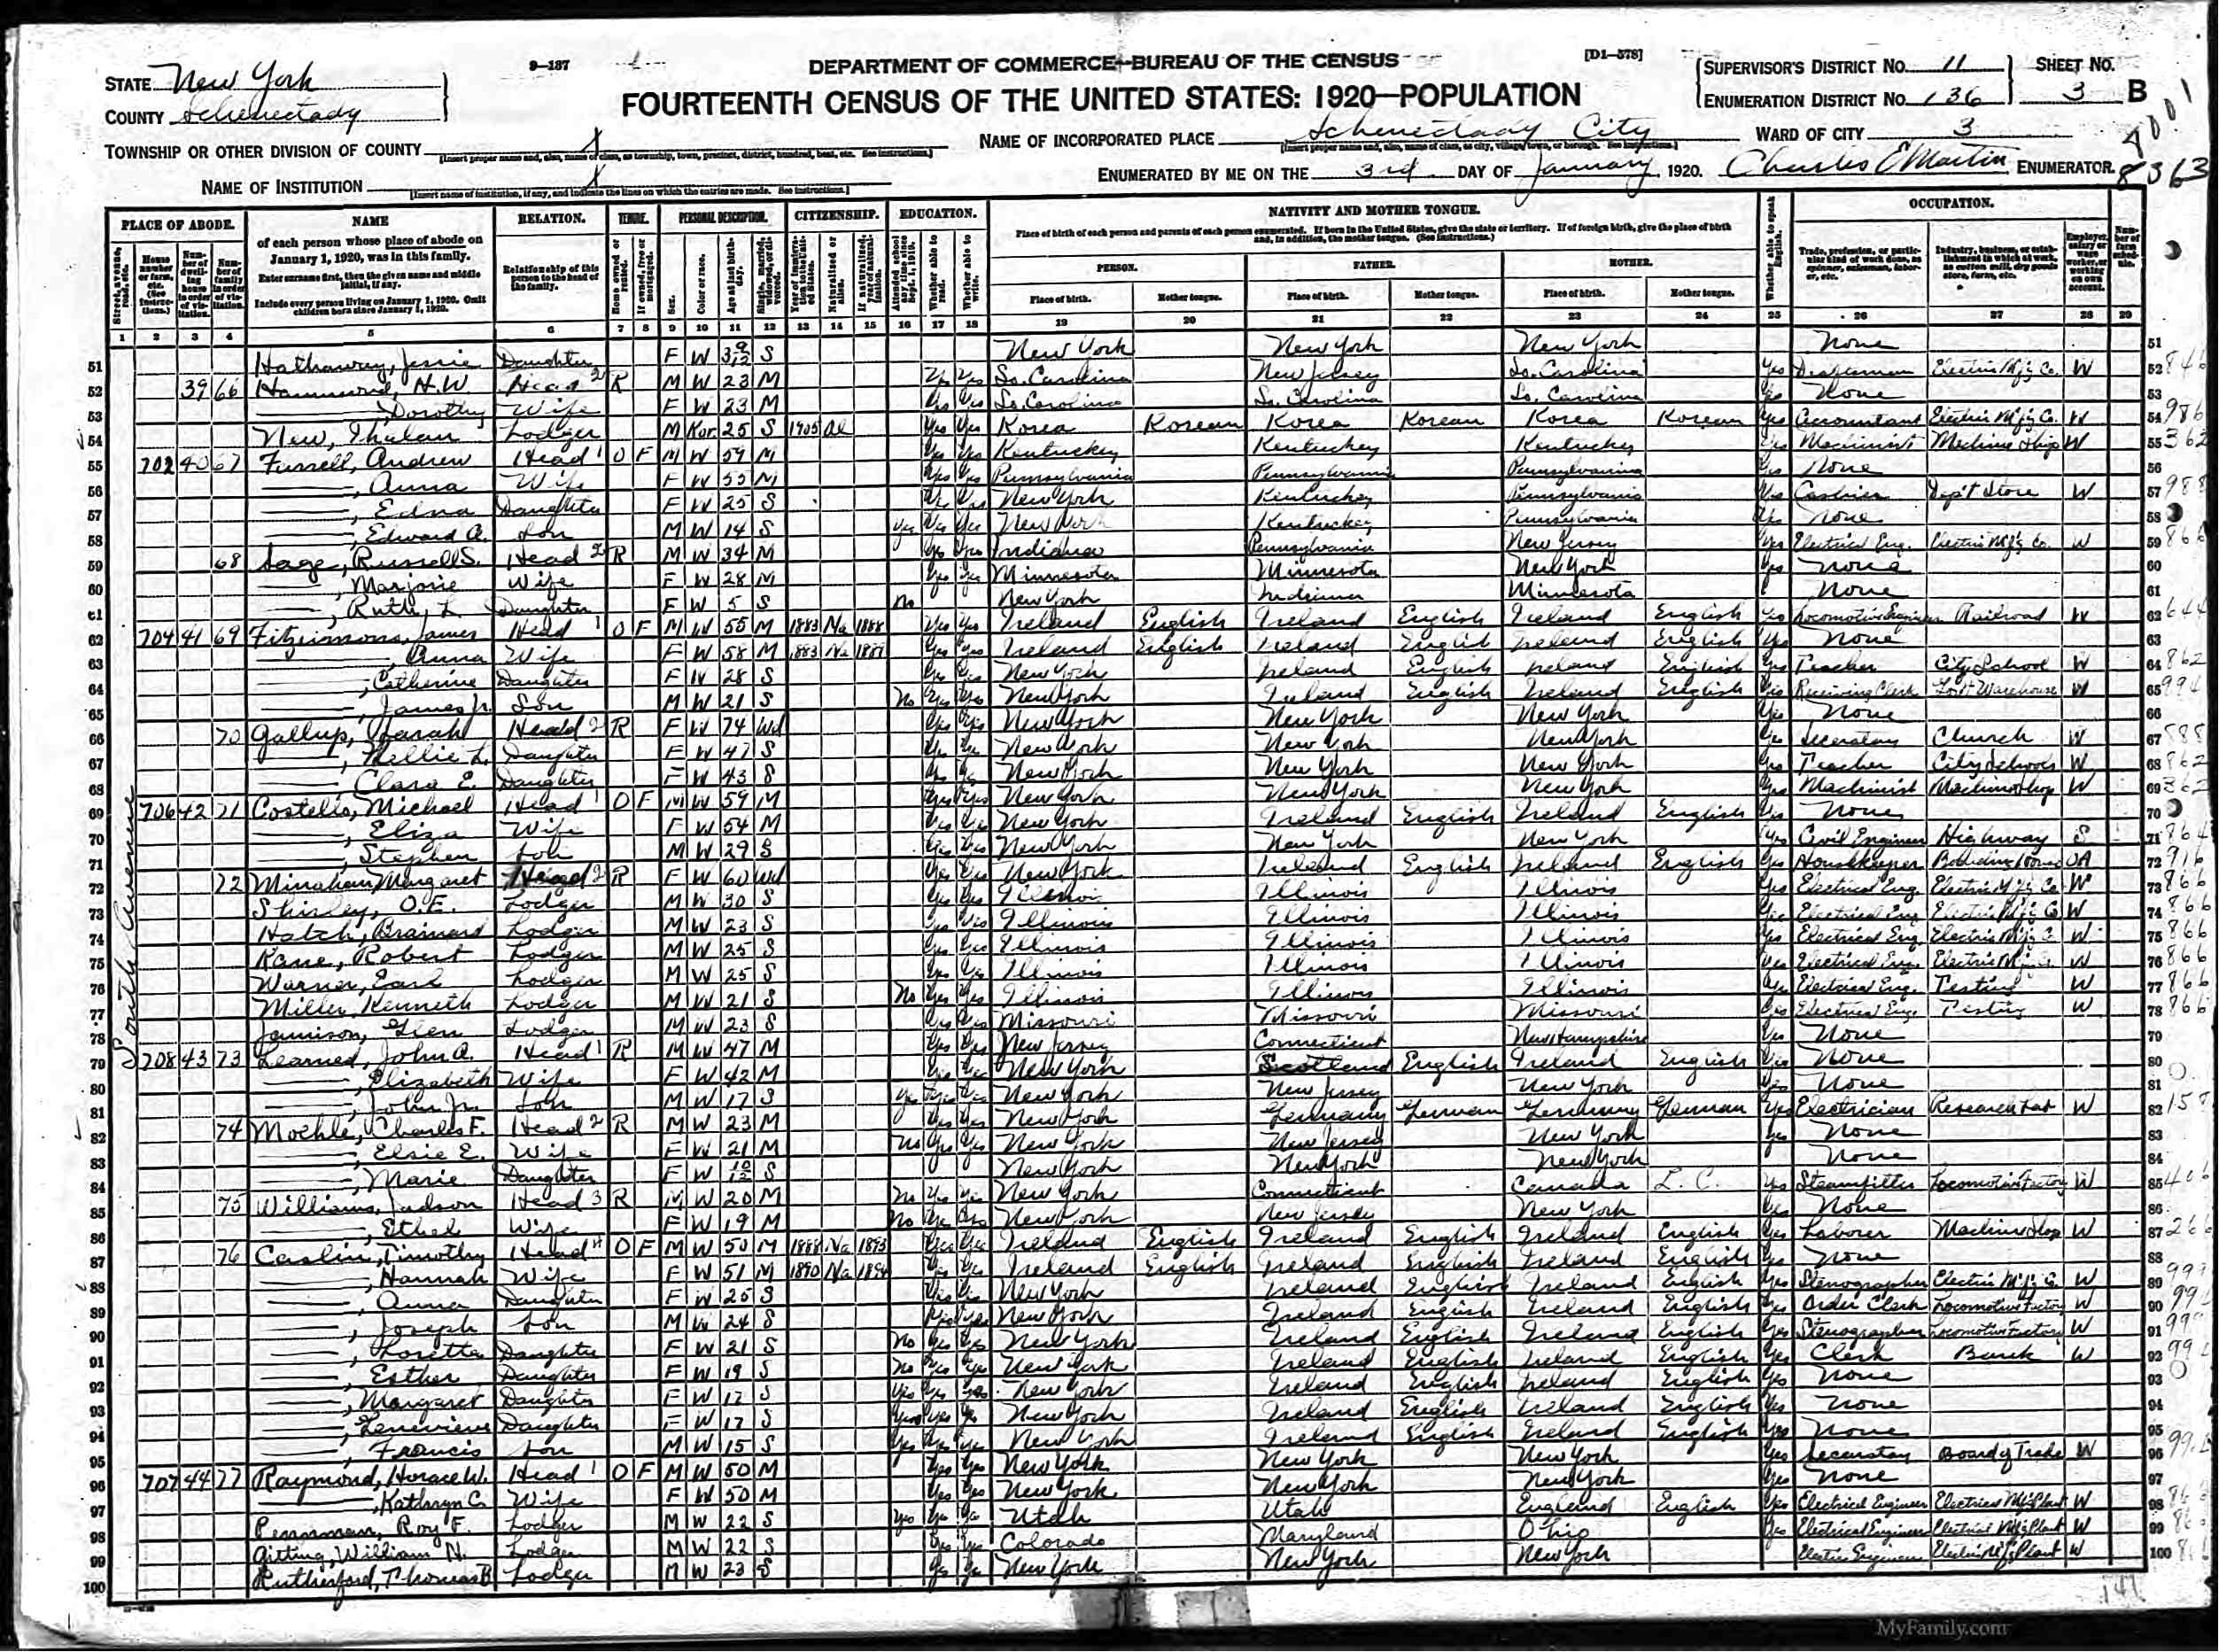 9-137
DEPARTMENT OF COMMERCE-BUREAU OF THE CENSUS
[D1-578]
STATE New York
COUNTY Schenectady
FOURTEENTH CENSUS OF THE UNITED STATES: 1920-POPULATION
SUPERVISOR'S DISTRICT NO. 11
ENUMERATION DISTRICT NO. 136
SHEET NO.
3 B
TOWNSHIP OR OTHER DIVISION OF COUNTY X
[Insert proper name and, also, name of class, as township, town, precinct, district, hundred, beat, etc. See instructions.]
NAME OF INCORPORATED PLACE Schenectady City
[Insert proper name and, also, name of class, as city, village, town, or borough. See instructions.]
WARD OF CITY 3
NAME OF INSTITUTION X
[Insert name of institution, if any, and indicate the lines on which the entries are made. See instructions.]
ENUMERATED BY ME ON THE 3rd DAY OF January, 1920. Charles E Martin ENUMERATOR.
8363
PLACE OF ABODE. NAME RELATION. TENURE. PERSONAL DESCRIPTION. CITIZENSHIP. EDUCATION. NATIVITY AND MOTHER TONGUE. OCCUPATION.
of each person whose place of abode on January 1, 1920, was in this family.
Enter surname first, then the given name and middle initial, if any.
Include every person living on January 1, 1920. Omit children born since January 1, 1920.
Relationship of this person to the head of the family.
Place of birth of each person and parents of each person enumerated. If born in the United States, give the state or territory. If of foreign birth, give the place of birth and, in addition, the mother tongue. (See instructions.)
PERSON. FATHER. MOTHER.
Place of birth. Mother tongue. Place of birth. Mother tongue. Place of birth. Mother tongue.
1 2 3 4 5 6 7 8 9 10 11 12 13 14 15 16 17 18 19 20 21 22 23 24 25 26 27 28 29
South Avenue
51 Hathaway, Jessie Daughter F W 3 9/12 S New York New York New York None
52 39 66 Hammond, H.W. Head 2 R M W 23 M Yes Yes So. Carolina New Jersey So. Carolina Yes Draftsman Electric M'f'g Co. W
53 Dorothy Wife F W 23 M Yes Yes So. Carolina So. Carolina So. Carolina Yes None
54 New, Lodger M Kor 25 S 1905 Al Yes Yes Korea Korean Korea Korean Korea Korean Yes Accountant Electric M'f'g Co. W
55 702 40 67 Furrell, Andrew Head 1 O F M W 59 M Yes Yes Kentucky Kentucky Kentucky Yes Machinist Machine Shop W
56 Anna Wife F W 55 M Yes Yes Pennsylvania Pennsylvania Pennsylvania Yes None
57 Edna Daughter F W 25 S Yes Yes New York Kentucky Pennsylvania Yes Cashier Dep't Store W
58 Edward A. Son M W 14 S Yes Yes Yes New York Kentucky Pennsylvania Yes None
59 68 Sage, Russell S. Head 2 R M W 34 M Yes Yes Indiana Pennsylvania New Jersey Yes Electrical Eng. Electric M'f'g Co. W
60 Marjorie Wife F W 28 M Yes Yes Minnesota Minnesota New York Yes None
61 Ruth L. Daughter F W 5 S No New York Indiana Minnesota None
62 704 41 69 Fitzsimmons, James Head 1 O F M W 55 M 1883 Na 1888 Yes Yes Ireland English Ireland English Ireland English Yes Locomotive Engineer Railroad W
63 Anna Wife F W 58 M 1883 Na Yes Yes Ireland English Ireland English Ireland English Yes None
64 Catherine Daughter F W 28 S Yes Yes New York Ireland English Ireland English Yes Teacher City School W
65 James Jr. Son M W 21 S No Yes Yes New York Ireland English Ireland English Yes Receiving Clerk Warehouse W
66 70 Gallup, Sarah Head 2 R F W 74 Wd Yes Yes New York New York New York Yes None
67 Nellie L. Daughter F W 47 S Yes Yes New York New York New York Yes Secretary Church W
68 Clara E. Daughter F W 43 S Yes Yes New York New York New York Yes Teacher City Schools W
69 706 42 71 Costello, Michael Head 1 O F M W 59 M Yes Yes New York New York New York Yes Machinist Machine Shop W
70 Eliza Wife F W 54 M Yes Yes New York Ireland English Ireland English Yes None
71 Stephen Son M W 29 S Yes Yes New York New York New York Yes Civil Engineer Highway S
72 72 Minahan, Margaret Head 2 R F W 60 Wd Yes Yes New York Ireland English Ireland English Yes Housekeeper Boarding House OA
73 Shirley, O.E. Lodger M W 30 S Yes Yes Illinois Illinois Illinois Yes Electrical Eng. Electric M'f'g Co W
74 Hatch, Brainard Lodger M W 23 S Yes Yes Illinois Illinois Illinois Yes Electrical Eng. Electric M'f'g Co W
75 Kane, Robert Lodger M W 25 S Yes Yes Illinois Illinois Illinois Yes Electrical Eng. Electric M'f'g C. W
76 Warner, Earl Lodger M W 25 S Yes Yes Illinois Illinois Illinois Yes Electrical Eng. Electric M'f'g W
77 Miller, Kenneth Lodger M W 21 S No Yes Yes Illinois Illinois Illinois Yes Electrical Eng. Testing W
78 Jamison, Glen Lodger M W 23 S Yes Yes Missouri Missouri Missouri Yes Electrical Eng. Testing W
79 708 43 73 Learned, John A. Head 1 R M W 47 M Yes Yes New Jersey Connecticut New Hampshire Yes None
80 Elizabeth Wife F W 42 M Yes Yes New York Scotland English Ireland English Yes None
81 John Jr. Son M W 17 S Yes Yes Yes New York New Jersey New York Yes None
82 74 Moehle, Charles F. Head 2 R M W 23 M Yes Yes New York Germany German Germany German Yes Electrician Research Lab W
83 Elsie E. Wife F W 21 M No Yes Yes New York New Jersey New York Yes None
84 Marie Daughter F W 10/12 S New York New York New York None
85 75 Williams, Judson Head 3 R M W 20 M No Yes Yes New York Connecticut Canada Yes Steamfitter Locomotive Factory W
86 Ethel Wife F W 19 M No Yes Yes New York New Jersey New York Yes None
87 76 Caslin, Timothy Head O F M W 50 M 1888 Na 1893 Yes Yes Ireland English Ireland English Ireland English Yes Laborer Machine Shop W
88 Hannah Wife F W 51 M 1890 Na Yes Yes Ireland English Ireland English Ireland English Yes None
89 Anna Daughter F W 25 S Yes Yes New York Ireland English Ireland English Yes Stenographer Electric M'f'g C. W
90 Joseph Son M W 24 S Yes Yes New York Ireland English Ireland English Yes Order Clerk Locomotive Factory W
91 Loretta Daughter F W 21 S No Yes Yes New York Ireland English Ireland English Yes Stenographer Locomotive Factory W
92 Esther Daughter F W 19 S No Yes Yes New York Ireland English Ireland English Yes Clerk Bank W
93 Margaret Daughter F W 17 S Yes Yes Yes New York Ireland English Ireland English Yes None
94 Genevieve Daughter F W 17 S Yes Yes Yes New York Ireland English Ireland English Yes None
95 Francis Son M W 15 S Yes Yes Yes New York Ireland English Ireland English Yes None
96 707 44 77 Raymond, Horace W. Head 1 O F M W 50 M Yes Yes New York New York New York Yes Secretary Board of Trade W
97 Kathryn C. Wife F W 50 M Yes Yes New York New York New York Yes None
98 Roy F. Lodger M W 22 S Yes Yes Yes Utah Utah England English Yes Electrical Engineer Electrical M'f'g Plant W
99 Gitting, William N. Lodger M W 22 S Yes Yes Colorado Maryland Ohio Yes Electrical Engineer Electrical M'f'g Plant W
100 Rutherford, Thomas B Lodger M W 23 S Yes Yes New York New York New York Electric Engineer Electric M'f'g Plant W
141
MyFamily.com